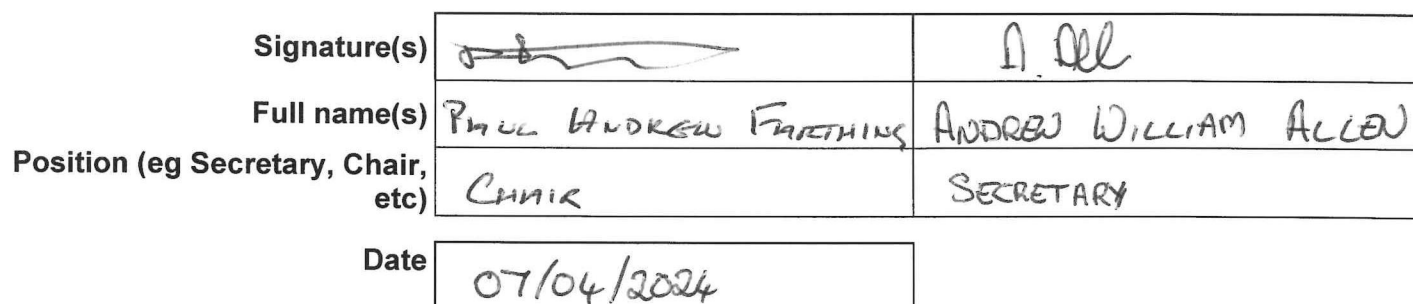 Signature(s) A. All
Full name(s) PAUL ANDREW FARTHING ANDREW WILLIAM ALLEN
Position (eg Secretary, Chair,
etc) CHAIR SECRETARY
Date 07/04/2024